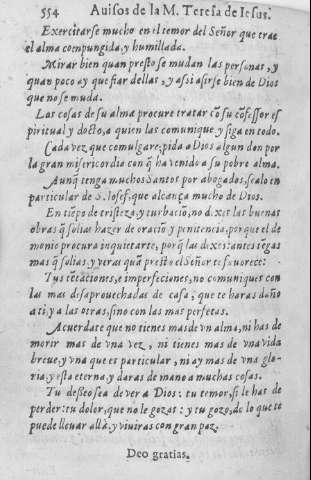 554 Auisos de la M. Teresa de Iesus.
Exercitarse mucho en el temor del Señor que trae
el alma compungida, y humillada.
Mirar bien quan presto se mudan las personas, y
quan poco ay que fiar dellas, y assi asirse bien de Dios
que no se muda.
Las cosas de su alma procure tratar cõ su cõfessor es
piritual y docto, a quien las comunique y siga en todo.
Cada vez que comulgare, pida a Dios algun don por
la gran misericordia con q̃ ha venido a su pobre alma.
Aunq̃ tenga muchos Santos por abogados, sealo en
particular de S. Iosef, que alcança mucho de Dios.
En tiẽpo de tristeza, y turbaciõ, no dexes las buenas
obras que solias hazer de oraciõ y penitencia, porque el de
monio procura inquietarte, porq̃ las dexes: antes tẽgas
mas q̃ solias, y veras quã presto el Señor te fauorece:
Tus tẽtaciones, e imperfeciones, no comuniques con
las mas desaprouechadas de casa, que te haras daño
a ti, y a las otras, sino con las mas perfetas.
Acuerdate que no tienes mas de vn alma, ni has de
morir mas de vna vez, ni tienes mas de vna vida
breue, y vna que es particular, ni ay mas de vna glo-
ria, y esta eterna, y daras de mano a muchas cosas.
Tu desseo sea de ver a Dios: tu temor, si le has de
perder: tu dolor, que no le gozas: y tu gozo, de lo que te
puede lleuar allà, y viuiras con gran paz.
Deo gratias.